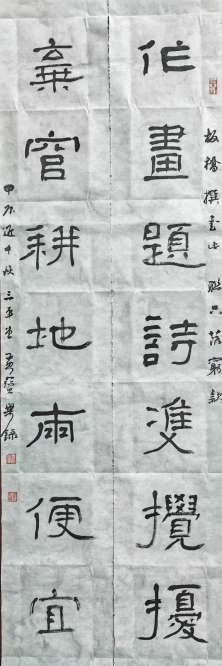 板橋撰書此聯只落窮款
作畫題詩雙攪擾
棄官耕地兩便宜
甲辰近中秋三